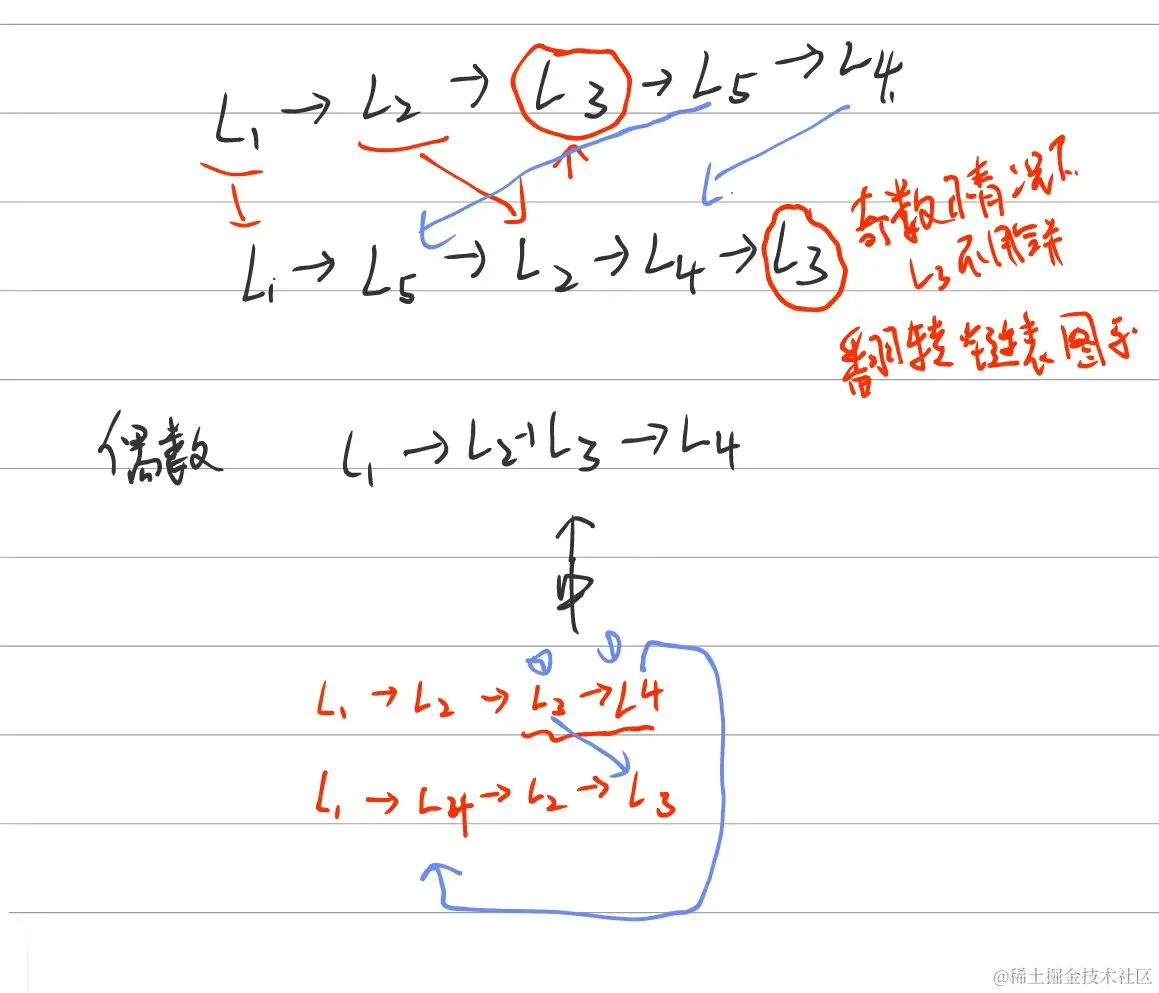 L1 → L2 → L3 → L5 → L4
L1 → L5 → L2 → L4 → L3
奇数情况下
L3 不用
翻转链表图示
偶数 L1 → L2 → L3 → L4
中
② ①
L1 → L2 → L3 → L4
L1 → L4 → L2 → L3
@稀土掘金技术社区